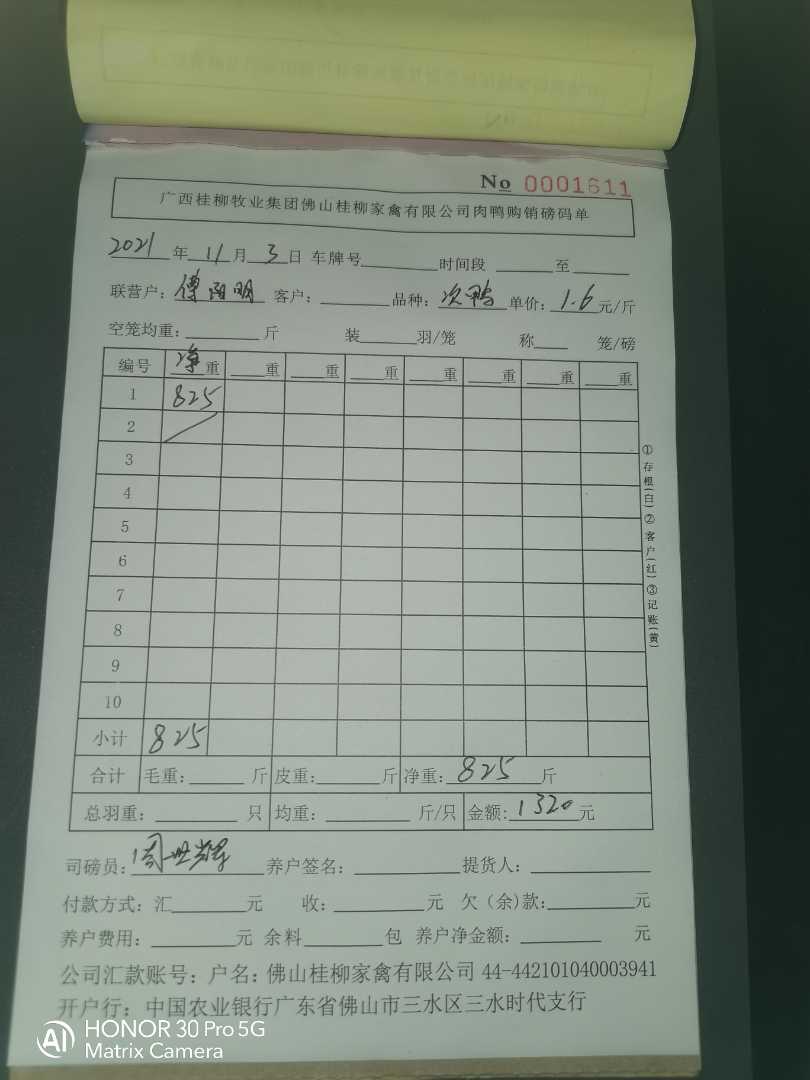 No 0001611
广西桂柳牧业集团佛山桂柳家禽有限公司肉鸭购销磅码单
2021年11月3日 车牌号 时间段 至
联营户:傅阳明 客户: 品种:次鸭 单价:1.6元/斤
空笼均重: 斤 装 羽/笼 称 笼/磅
编号 净重 重 重 重 重 重 重 重
1 825
2
3
4
5
6
7
8
9
10
小计 825
合计 毛重: 斤 皮重: 斤 净重:825斤
总羽重: 只 均重: 斤/只 金额:1320元
司磅员:周世辉 养户签名: 提货人:
付款方式:汇 元 收: 元 欠(余)款: 元
养户费用: 元 余料 包 养户净金额: 元
公司汇款账号:户名:佛山桂柳家禽有限公司 44-442101040003941
开户行:中国农业银行广东省佛山市三水区三水时代支行
①存根(白)②客户(红)③记账(黄)
AI HONOR 30 Pro 5G
Matrix Camera